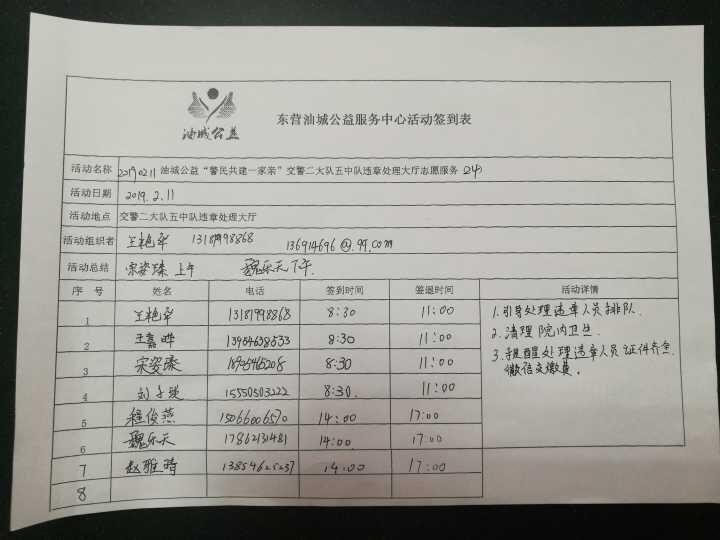 油城公益
东营油城公益服务中心活动签到表
活动名称 20190211 油城公益“警民共建一家亲”交警二大队五中队违章处理大厅志愿服务
活动日期 2019.2.11
活动地点 交警二大队五中队违章处理大厅
活动组织者 王艳华 13181998868 136914696@.qq.com
活动总结 宋姿臻 上午 魏乐天 下午.
序 号 姓名 电话 签到时间 签退时间 活动详情
1 王艳华 13181998868 8:30 11:00
2 王嘉晔 8:30 11:00
3 宋姿臻 8:30 11:00
4 15550503222 8:30. 11:00
5 程俊燕 15066006570 14:00 17:00
6 魏乐天 17862131481 14:00. 17:00
7 赵雅晴 14:00 17:00
8
1.引导处理违章人员排队.
2.清理院内卫生.
3.提醒处理违章人员证件齐全.
微信交缴费.